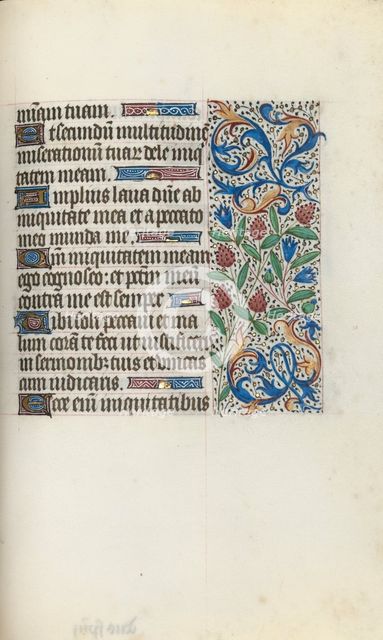 m̄am tuam.
Et secundum multitudinē
miserationum tuar dele iniq
tatem meam.
Amplius laua dn̄e ab
iniquitate mea et a peccato
meo munda me
Qm̄ iniquitatem meam
ego cognosco: et pctm̄ meū
contra me est sempe
Tibi soli peccaui et ma
lum corā te feci ut iustificeris
in sermonib; tuis et vincas
cum iudicaris.
Ecce em̄ iniquitatibus